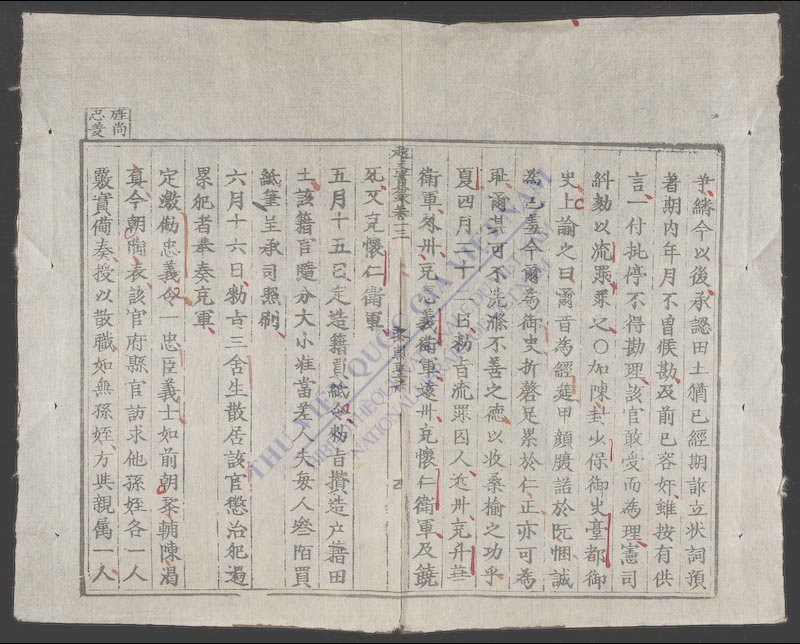 旌尚
忠義
爭縐今以後承認田土猶已經期訴立狀詞預
著期内年月不曾候勘及前已容奸雖按有供
言一付批停不得勘理該官敢受而爲理憲司
糾劾以流罪罪之〇加陳封少保御史臺都御
史上諭之曰爾昔爲經筵甲顔膄諾於阮悃誠
爲已羞今爾爲御史折磬足累於仁正亦可爲
耻爾其可不洗滌不善之德以收桑榆之功乎
夏四月二十一日勑旨流罪囚人近州充升華
衛軍外州充忠義衛軍遠州充懷仁衛軍及饒
死又充懷仁衛軍
越史實錄卷三
五月十五日定造籍買紙令勑旨攢造户籍田
土該籍官隨分大小准當差人夫每人叄陌買
紙筆呈承司照刷
六月十六日勑旨三舍生散居該官懲治犯過
累犯者奉奏充軍
定獓勸忠義令一忠臣義士如前朝黎輔陳渴
真今朝陶表該官府縣官訪求他孫姪各一人
覈實啇奏授以散職如無孫姪方具親屬一人
THƯ VIỆN QUỐC GIA VIỆT NAM
BIBLIOTHÈQUE NATIONALE DU VIETNAM
NATIONAL LIBRARY OF VIETNAM